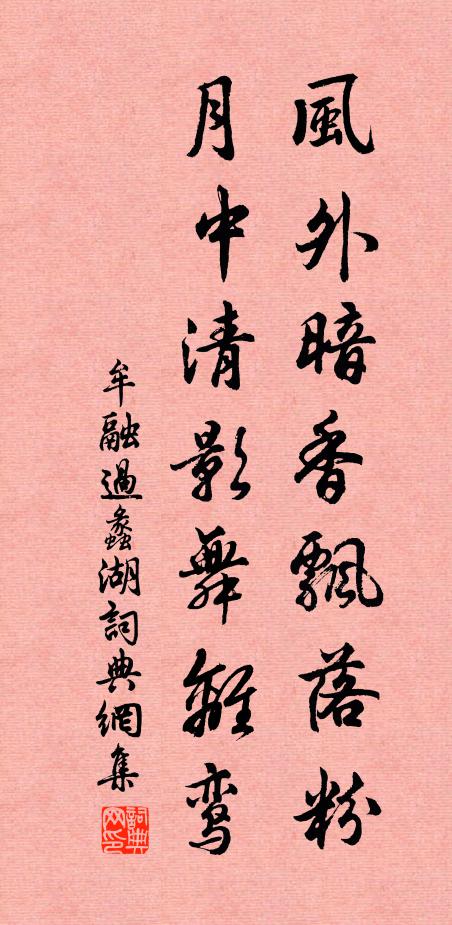 風外暗香飄落粉
月中清影舞離鸞
牟融過蠡湖詞典網集
詞典网印